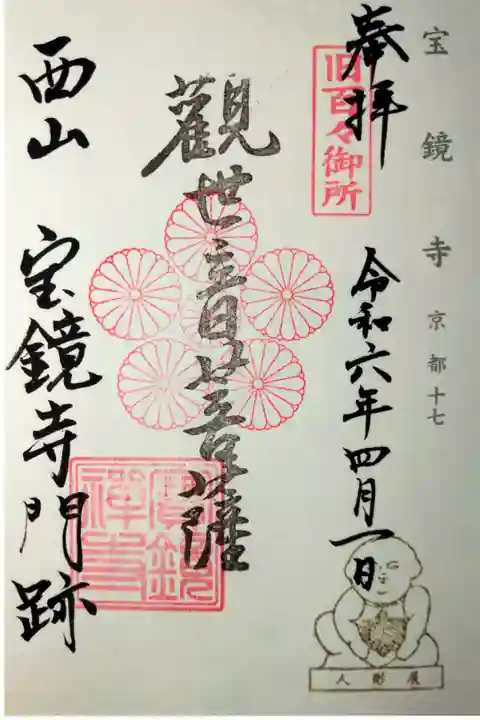 宝鏡寺 京都十七
奉拝
旧百々御所
令和六年四月一日
觀世音菩薩
寳鏡禅寺
西山 宝鏡寺門跡
人形展